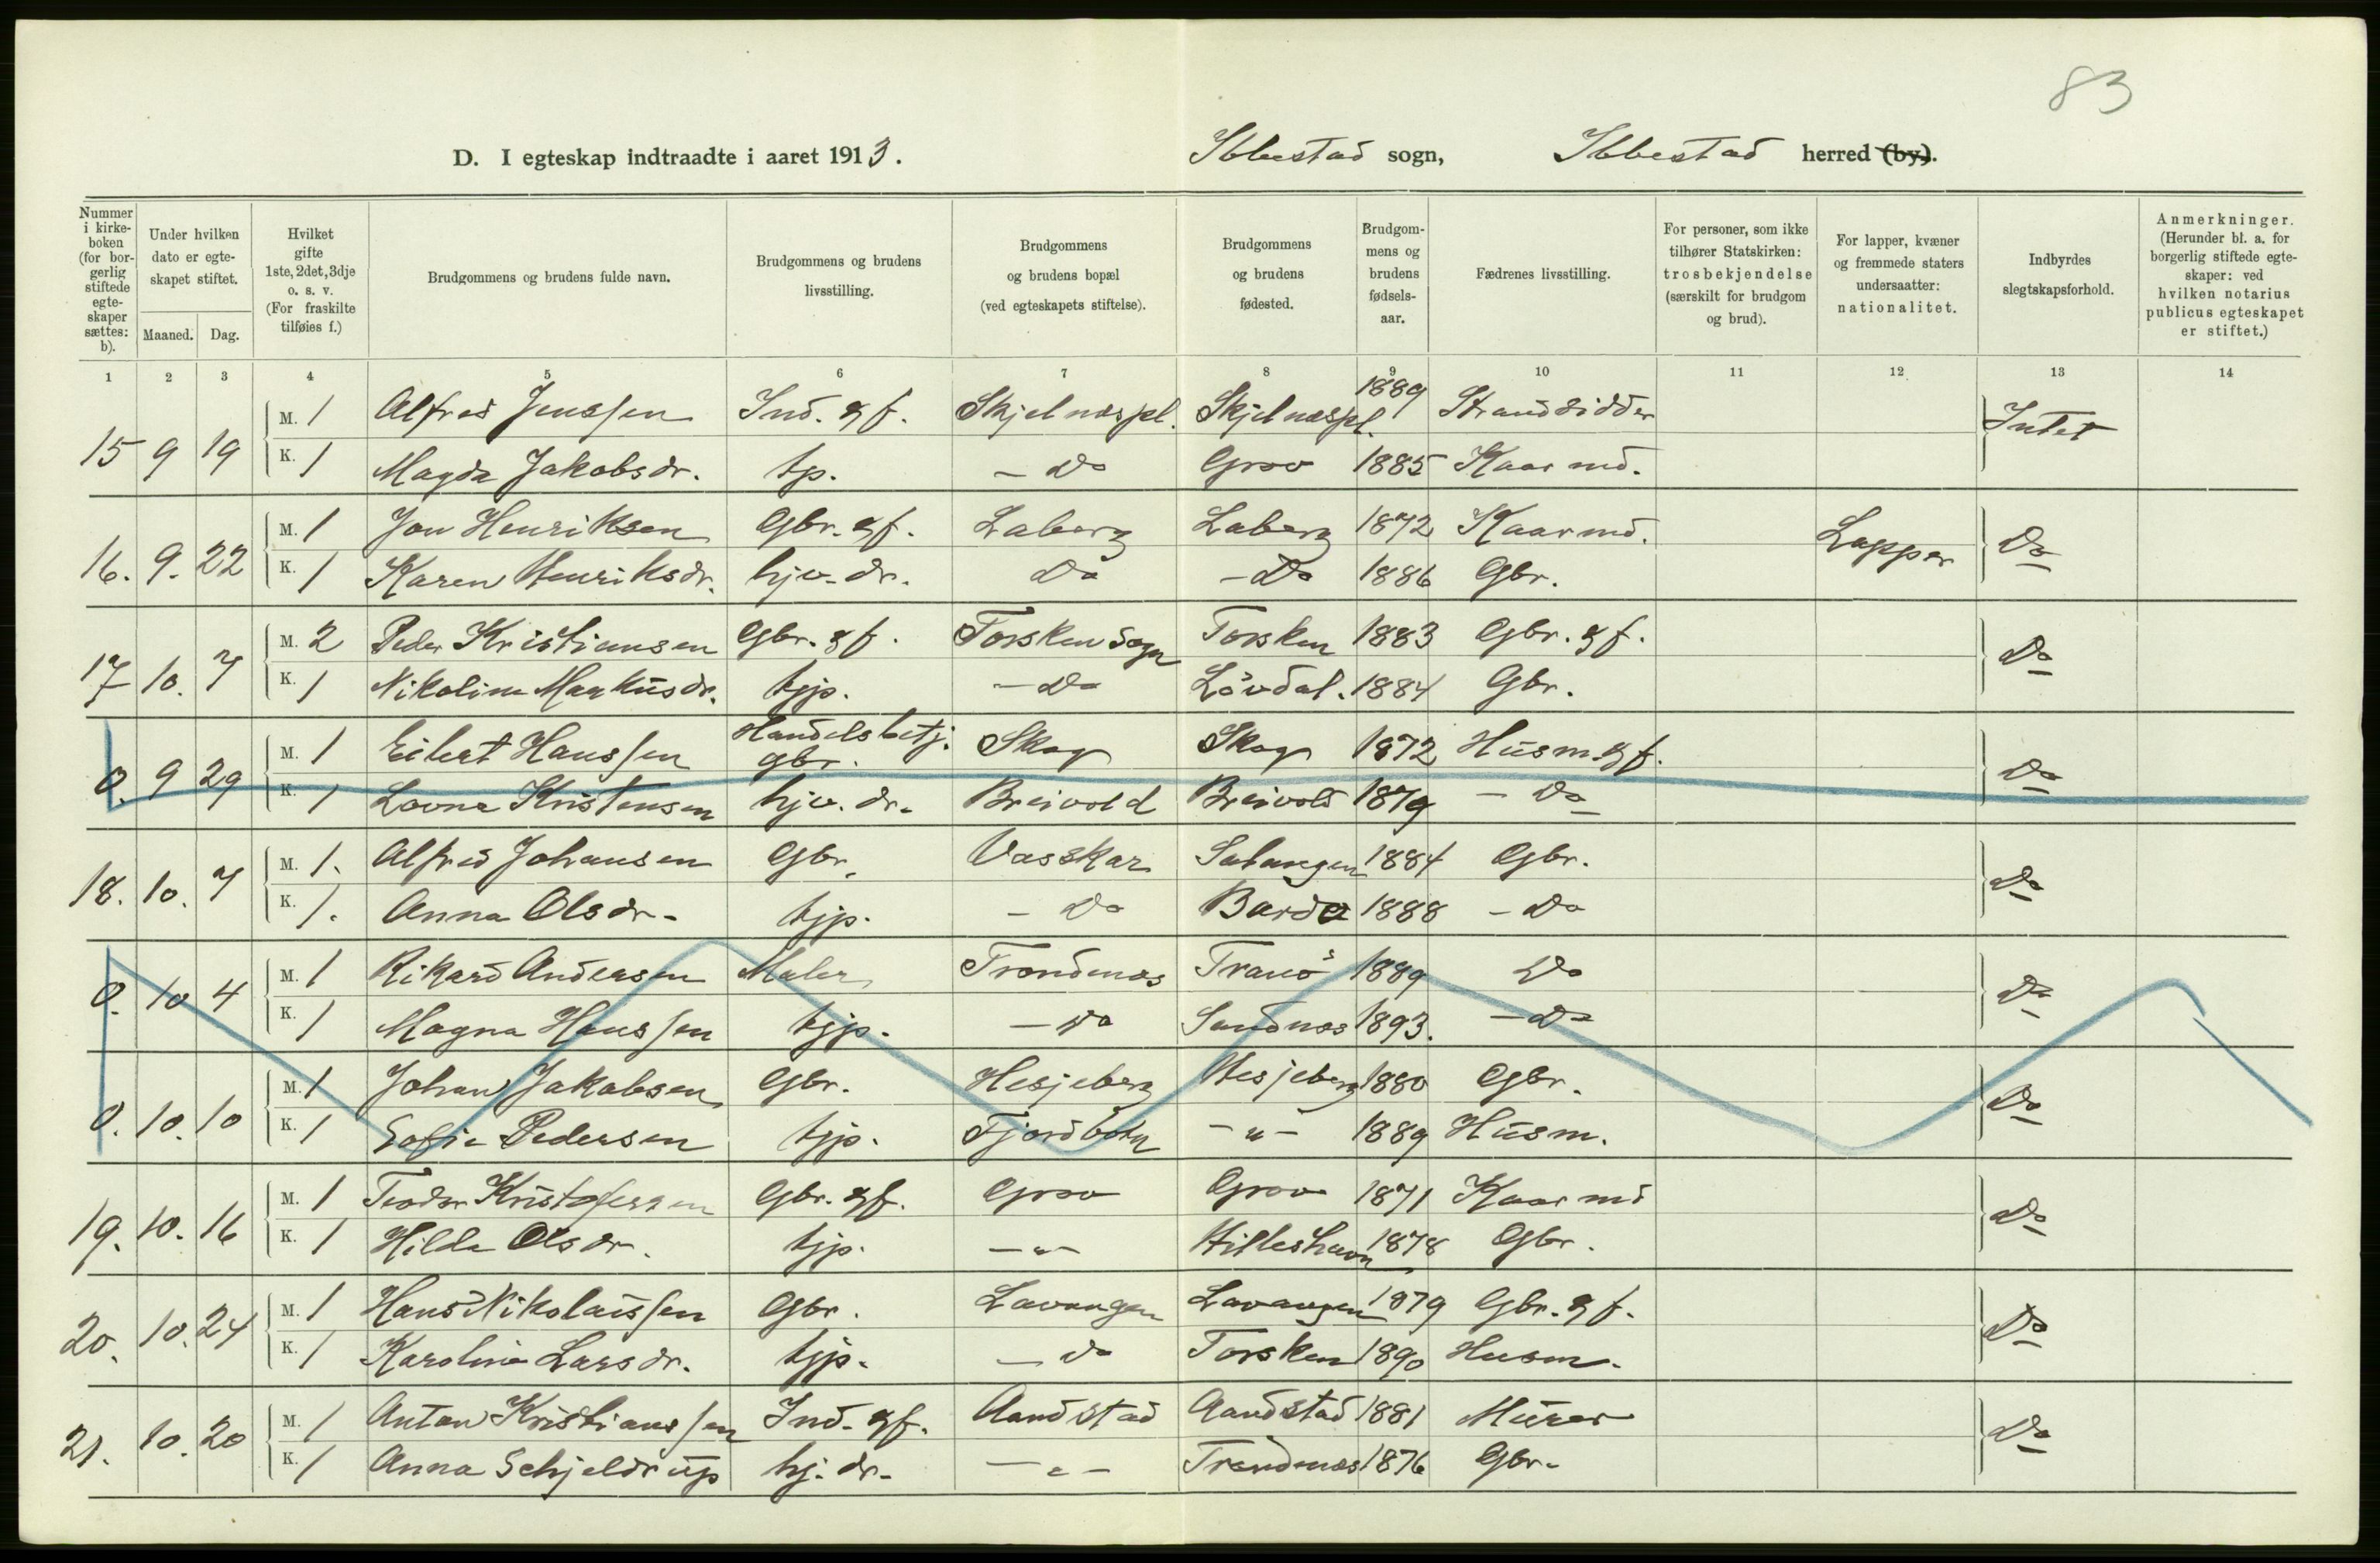 83
D. I egteskap indtraadte i aaret 1913.
Ibbestad sogn, Ibbestad herred (by).
Nummer i kirkeboken (for borgerlig stiftede egteskaper sættes: b).
Under hvilken dato er egteskapet stiftet.
Maaned. Dag.
Hvilket gifte 1ste, 2det, 3dje o. s. v. (For fraskilte tilføies f.)
Brudgommens og brudens fulde navn.
Brudgommens og brudens livsstilling.
Brudgommens og brudens bopæl (ved egteskapets stiftelse).
Brudgommens og brudens fødested.
Brudgommens og brudens fødselsaar.
Fædrenes livsstilling.
For personer, som ikke tilhører Statskirken: trosbekjendelse (særskilt for brudgom og brud).
For lapper, kvæner og fremmede staters undersaatter: nationalitet.
Indbyrdes slegtskapsforhold.
Anmerkninger. (Herunder bl. a. for borgerlig stiftede egteskaper: ved hvilken notarius publicus egteskapet er stiftet.)
1 2 3 4 5 6 7 8 9 10 11 12 13 14
15 9 19 M. 1 Alfred Jenssen Ind. & f. Skjelnæspl. Skjelnæspl. 1889 Strandsidder Intet
K. 1 Magda Jakobsdr. tjp. - Do Grov 1885 Kaarmd.
16. 9. 22 M. 1 Jon Henriksen Gbr. & f. Laberg Laberg 1872 Kaarmd. Lapper Do
K. 1 Karen Henriksdr. hjv. dr. Do - Do 1886 Gbr.
17 10. 7 M. 2 Peder Kristiansen Gbr. & f. Torsken sogn Torsken 1883 Gbr. & f. Do
K. 1 Nikoline Markusdr. tjp. - Do Lövdal. 1884 Gbr.
0. 9 29 M. 1 Eibert Hanssen Handelsbetj. gbr. Skog Skog 1872 Husm. & f. Do
K. 1 Lovna Kristensen hjv. dr. Breivold Breivold 1879 - Do
18. 10. 7 M. 1. Alfred Johansen Gbr. Vasskar Salangen 1884 Gbr. Do
K. 1. Anna Olsdr. tjp. - Do Bardo 1888 - Do
0. 10 4 M. 1 Rikard Andersen Maler Trondenæs Tranö 1889 Do Do
K. 1 Magna Hanssen tjp. - Do Sandnæs 1893. - Do
0. 10. 10 M. 1 Johan Jakobsen Gbr. Hesjeberg Hesjeberg 1880 Gbr. Do
K. 1 Sofie Pedersen tjp. Fjordbotn - " - 1889 Husm.
19. 10. 16 M. 1 Teodor Kristofersen Gbr. & f. Grov Grov 1871 Kaarmd Do
K. 1 Hilda Olsdr. tjp. - " - Hilleshavn 1878 Gbr.
20. 10. 24 M. 1 Hans Nikolaissen Gbr. Lavangen Lavangen 1879 Gbr. & f. Do
K. 1 Karoline Larsdr. tjp. - Do Torsken 1890 Husm.
21. 10. 20 M. 1 Anton Kristianssen Ind. & f. Aandstad Aandstad 1881 Murer Do
K. 1 Anna Schjeldrup hj. dr. - " - Trondenæs 1876 Gbr.